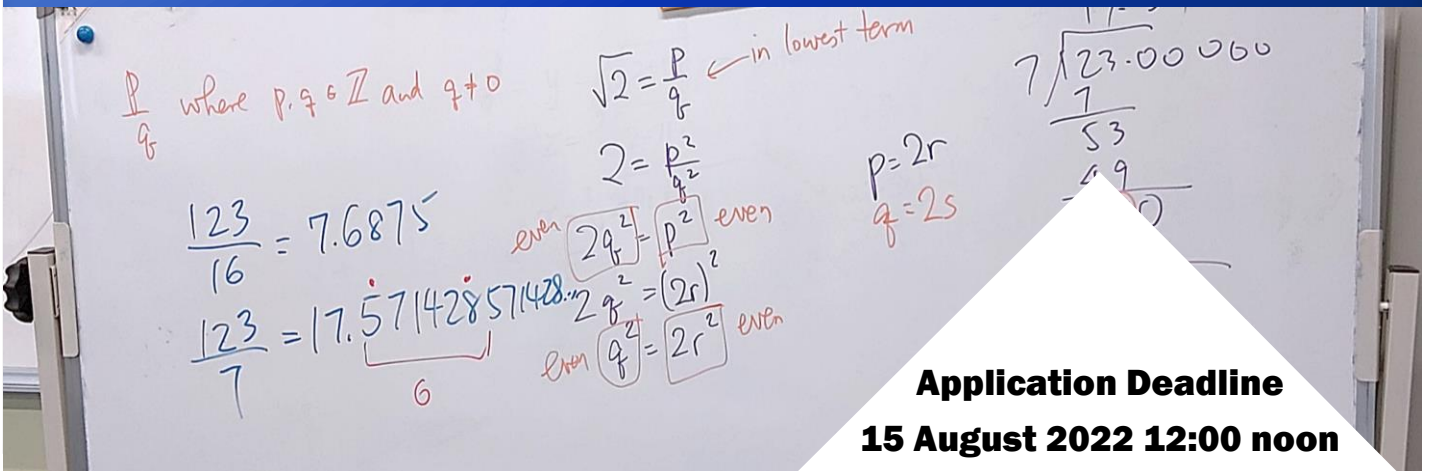 p/q where p, q ∈ ℤ and q ≠ 0
123/16 = 7.6875
123/7 = 17.571428571428...
6
√2 = p/q ← in lowest term
2 = p²/q²
even 2q² = p² even
2q² = (2r)²
even q² = 2r² even
p = 2r
q = 2s
7 23.00000
7
53
49
Application Deadline
15 August 2022 12:00 noon